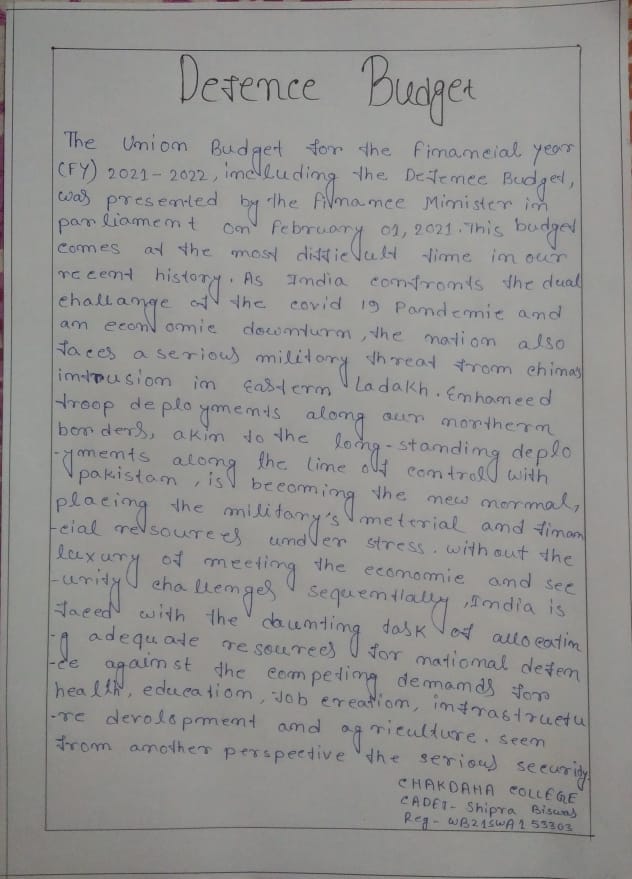 Defence Budget
The Union Budget for the financial year
(FY) 2021-2022, including the Defence Budget,
was presented by the finance Minister in
parliament on february 01, 2021. This budget
comes at the most difficult time in our
recent history. As India confronts the dual
challange of the covid 19 Pandemic and
an economic downturn, the nation also
faces a serious military threat from chinas
intrusion in Eastern Ladakh. Enhanced
troop deployments along our northern
borders, akin to the long-standing deplo
-yments along the line of control with
pakistan, is becoming the new normal,
placing the military's meterial and finan
-cial resources under stress. without the
luxury of meeting the economic and sec
-urity challenges sequentially, India is
faced with the daunting task of allocatin
-g adequate resources for national defen
-ce against the competing demands for
health, education, Job creation, infrastructu
-re devolopment and agriculture. seen
from another perspective the serious security
CHAKDAHA COLLEGE
CADET- Shipra Biswas
Reg - WB21SWA153303